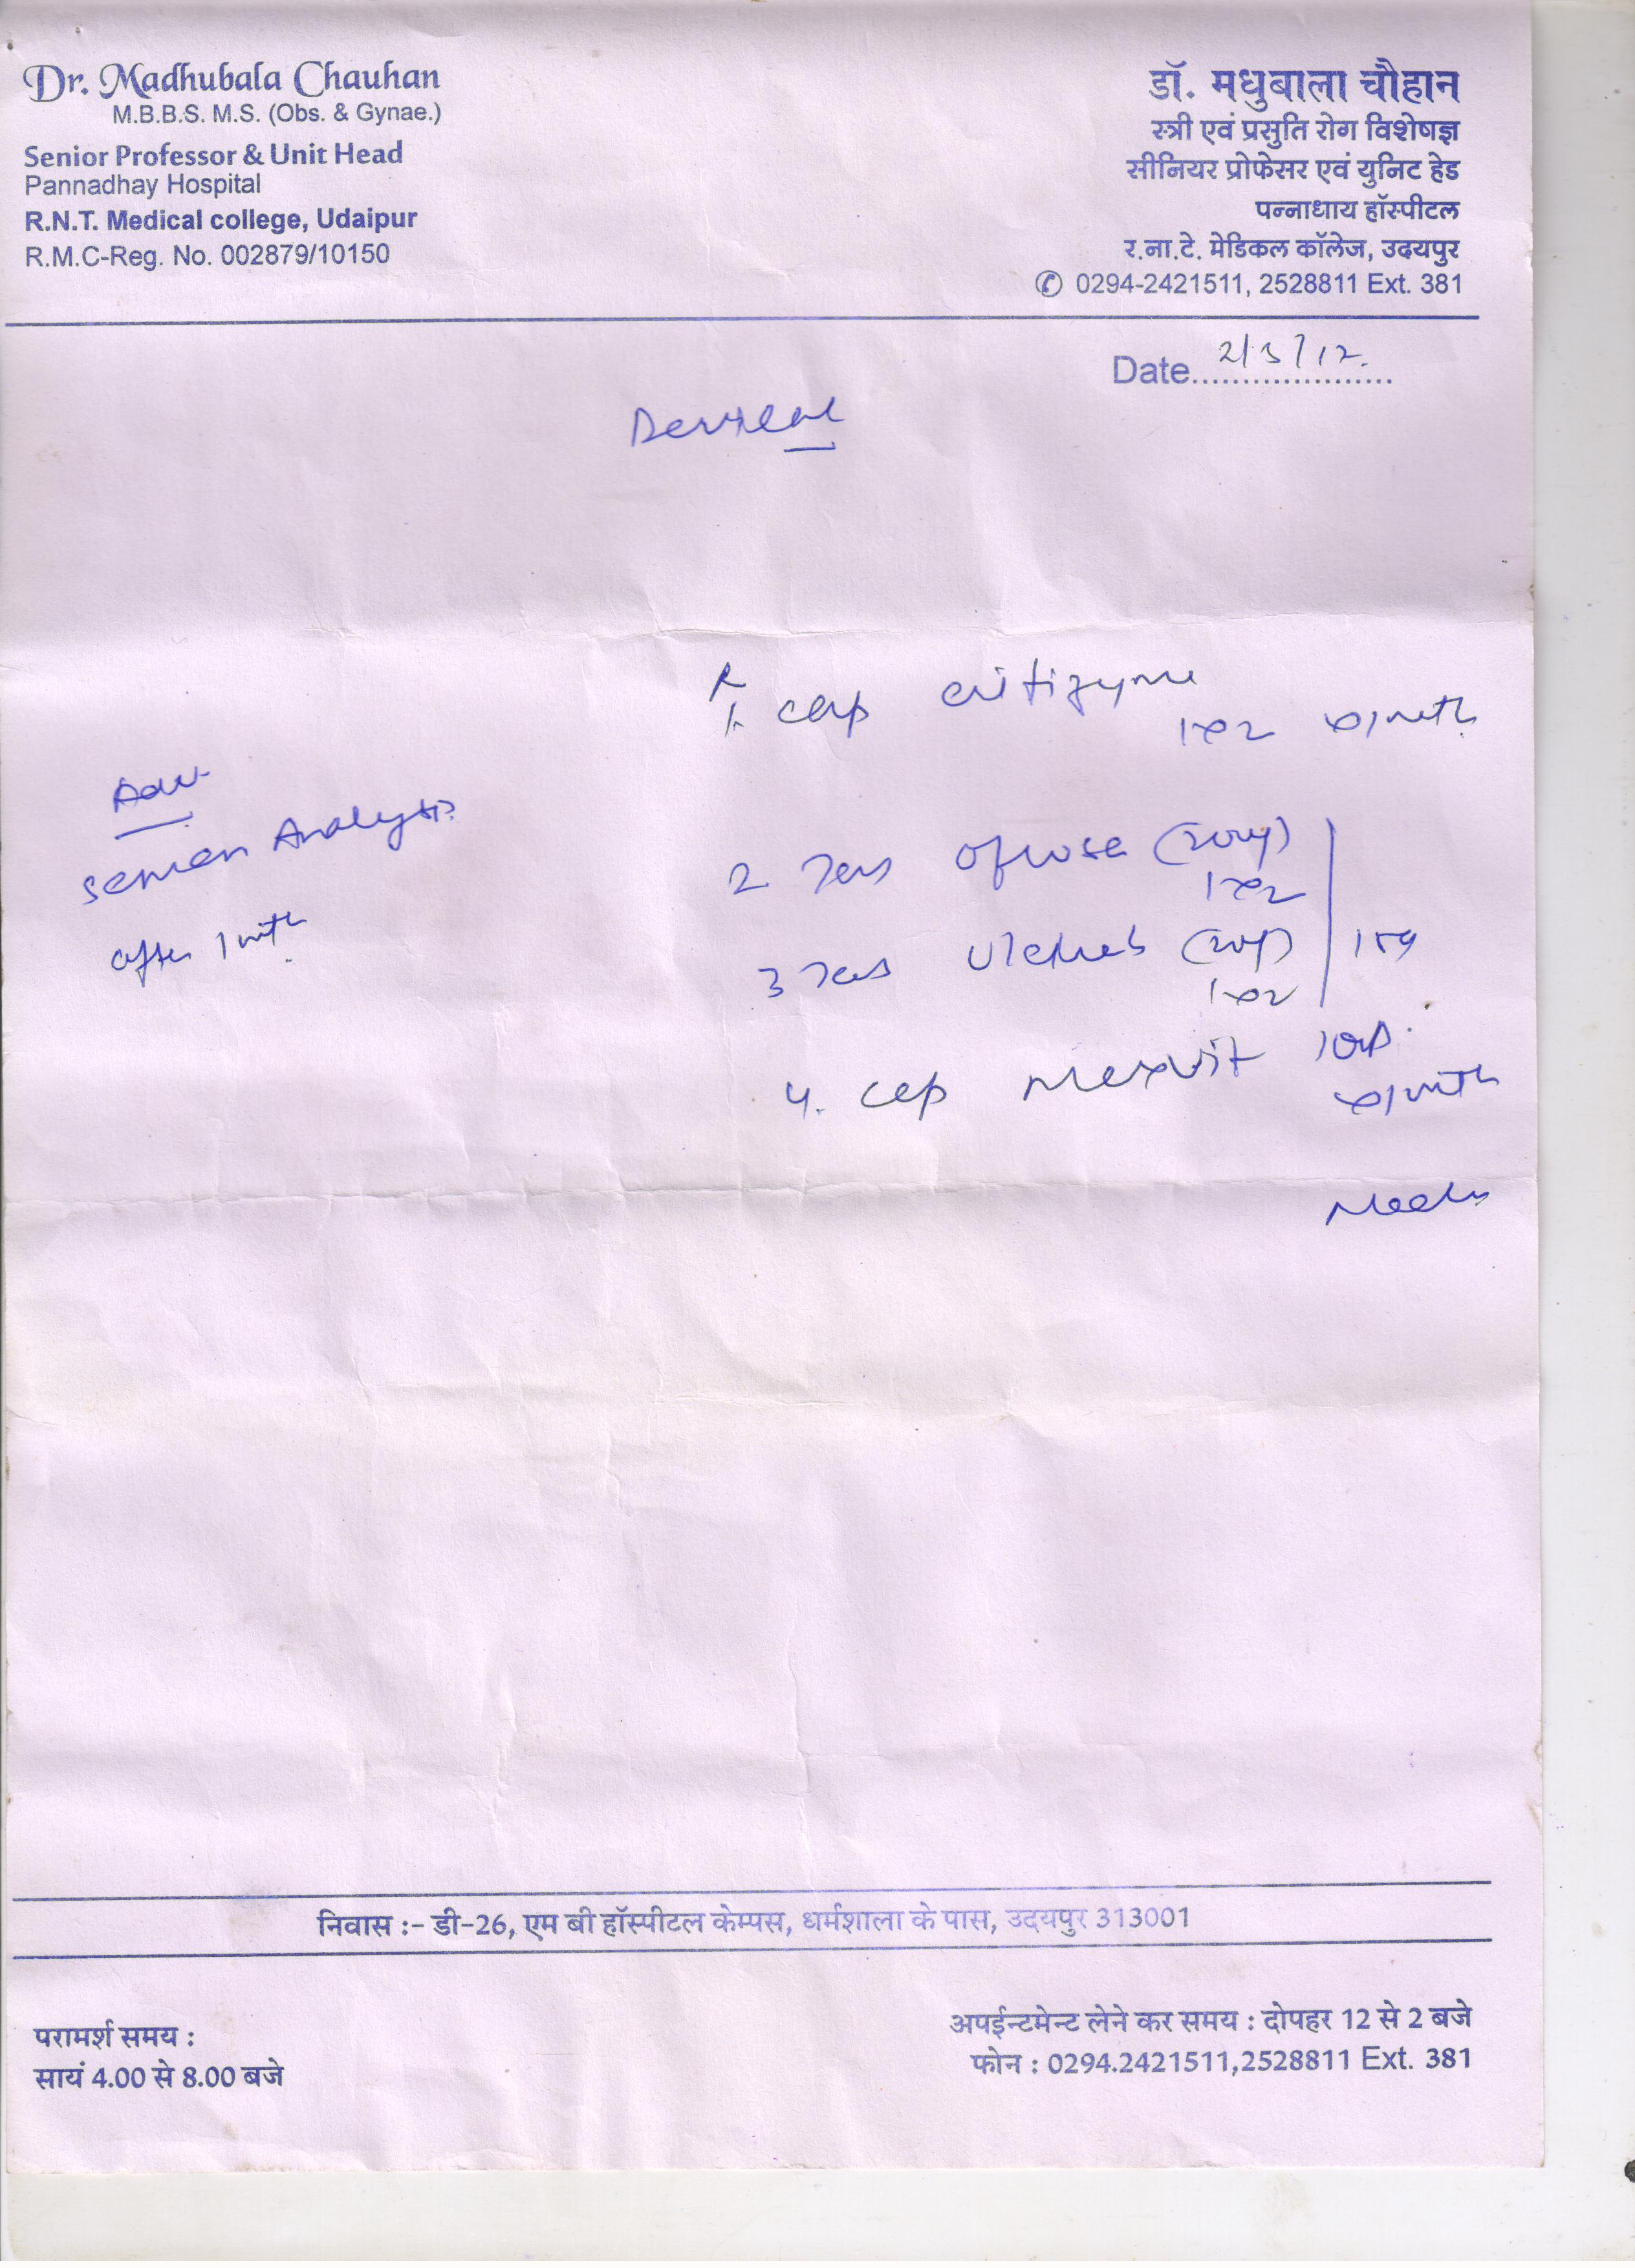 Dr. Madhubala Chauhan
M.B.B.S. M.S. (Obs. & Gynae.)
Senior Professor & Unit Head
Pannadhay Hospital
R.N.T. Medical college, Udaipur
R.M.C-Reg. No. 002879/10150
डॉ. मधुबाला चौहान
स्त्री एवं प्रसुति रोग विशेषज्ञ
सीनियर प्रोफेसर एवं युनिट हेड
पन्नाधाय हॉस्पीटल
र.ना.टे. मेडिकल कॉलेज, उदयपुर
✆ 0294-2421511, 2528811 Ext. 381
Date 2/3/12.
1. cap
1x2 x 1 mth
Adv
semen Analysis
after 1 mth
2
1x2
3
1x2
4. cap
x 1 mth
निवास :- डी-26, एम बी हॉस्पीटल केम्पस, धर्मशाला के पास, उदयपुर 313001
परामर्श समय :
सायं 4.00 से 8.00 बजे
अपईन्टमेन्ट लेने कर समय : दोपहर 12 से 2 बजे
फोन : 0294.2421511,2528811 Ext. 381